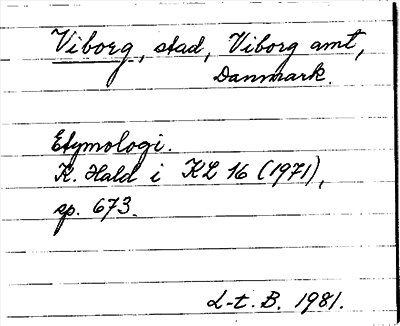 Viborg, stad, Viborg amt,
Danmark.
Etymologi.
K. Hald i KL 16 (1971),
sp. 673.
L-t. B. 1981.